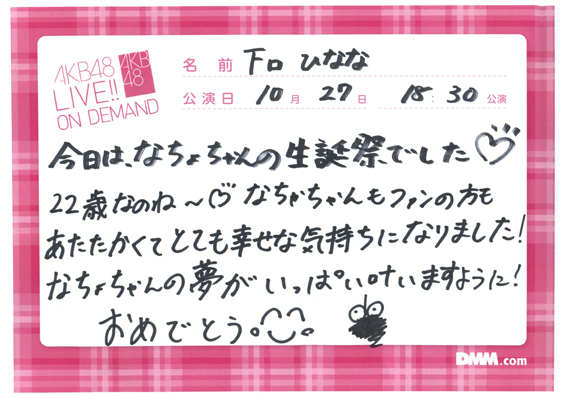 AKB48
LIVE!!
ON DEMAND
AKB
48
名前 下口 ひなな
公演日 10月 27日 18:30公演
今日は、なちょちゃんの生誕祭でした♡
22歳なのね〜♡ なちょちゃんもファンの方も
あたたかくてとても幸せな気持ちになりました！
なちょちゃんの夢がいっぱい叶いますように！
おめでとう。
DMM.com